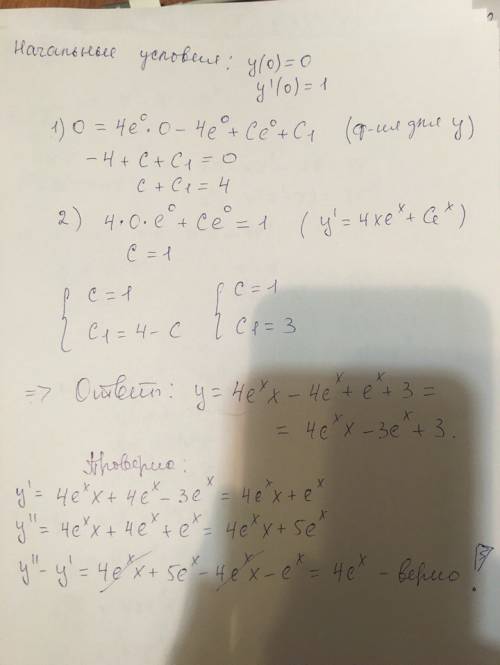 Начальные условия: y(0)=0
y'(0)=1
1) 0 = 4e⁰·0 - 4e⁰ + Ce⁰ + C1 (ф-ия для y)
-4 + C + C1 = 0
C + C1 = 4
2) 4·0·e⁰ + Ce⁰ = 1 (y' = 4xeˣ + Ceˣ)
C = 1
{ C = 1 { C = 1
C1 = 4 - C C1 = 3
=> Ответ: y = 4eˣx - 4eˣ + eˣ + 3 =
= 4eˣx - 3eˣ + 3.
Проверка:
y' = 4eˣx + 4eˣ - 3eˣ = 4eˣx + eˣ
y'' = 4eˣx + 4eˣ + eˣ = 4eˣx + 5eˣ
y'' - y' = 4eˣx + 5eˣ - 4eˣx - eˣ = 4eˣ - верно!